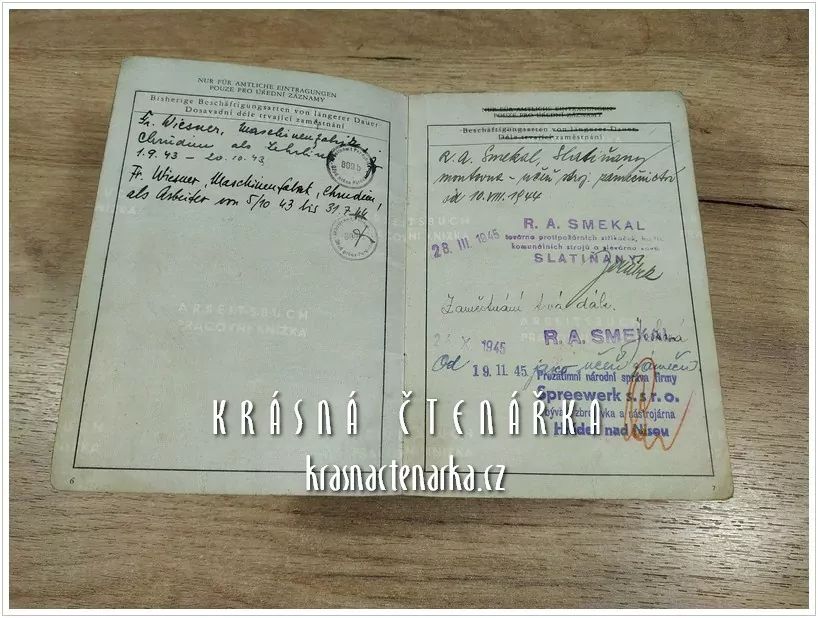 NUR FÜR AMTLICHE EINTRAGUNGEN
POUZE PRO ÚŘEDNÍ ZÁZNAMY
Bisherige Beschäftigungsarten von längerer Dauer
Dosavadní déle trvající zaměstnání
Fr. Wiesner, Maschinenfabrik
Chrudim als Lehrling
1.9.43 – 20.10.43
Fr. Wiesner, Maschinenfabrik, Chrudim,
als Arbeiter von 5/10 43 bis 31.7.44
ARBEITSBUCH
PRACOVNÍ KNÍŽKA
6
NUR FÜR AMTLICHE EINTRAGUNGEN
POUZE PRO ÚŘEDNÍ ZÁZNAMY
Beschäftigungsarten von längerer Dauer
Déle trvající zaměstnání
R. A. Smekal, Slatiňany
montovna – učeň stroj. zámečnictví
od 10.VIII.1944
28. III. 1945
R. A. SMEKAL
továrna protipožárních stříkaček,
komunálních strojů a slévárna kovů
SLATIŇANY
Zaměstnání trvá dále.
X 1945
R. A. SMEKAL
Od 19. 11. 45. jako učeň zámeč.
Prozatímní národní správa firmy
Spreewerk s. s r. o.
býv. zbrojovka a nástrojárna
nad Nisou
7
KRÁSNÁ ČTENÁŘKA
krasnactenarka.cz